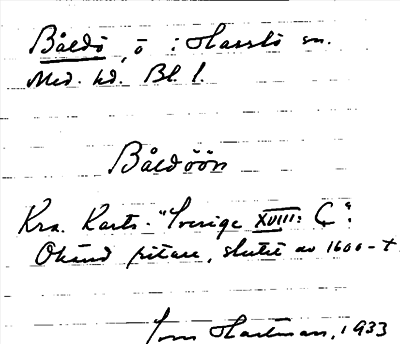 Båldö, ö i Hasslö sn.
Med. hd. Bl. l.
Båldöön
Kra. Kartv. "Sverige XVIII: C".
Okänd ritare, slutet av 1600-t
Tom Hartman, 1933